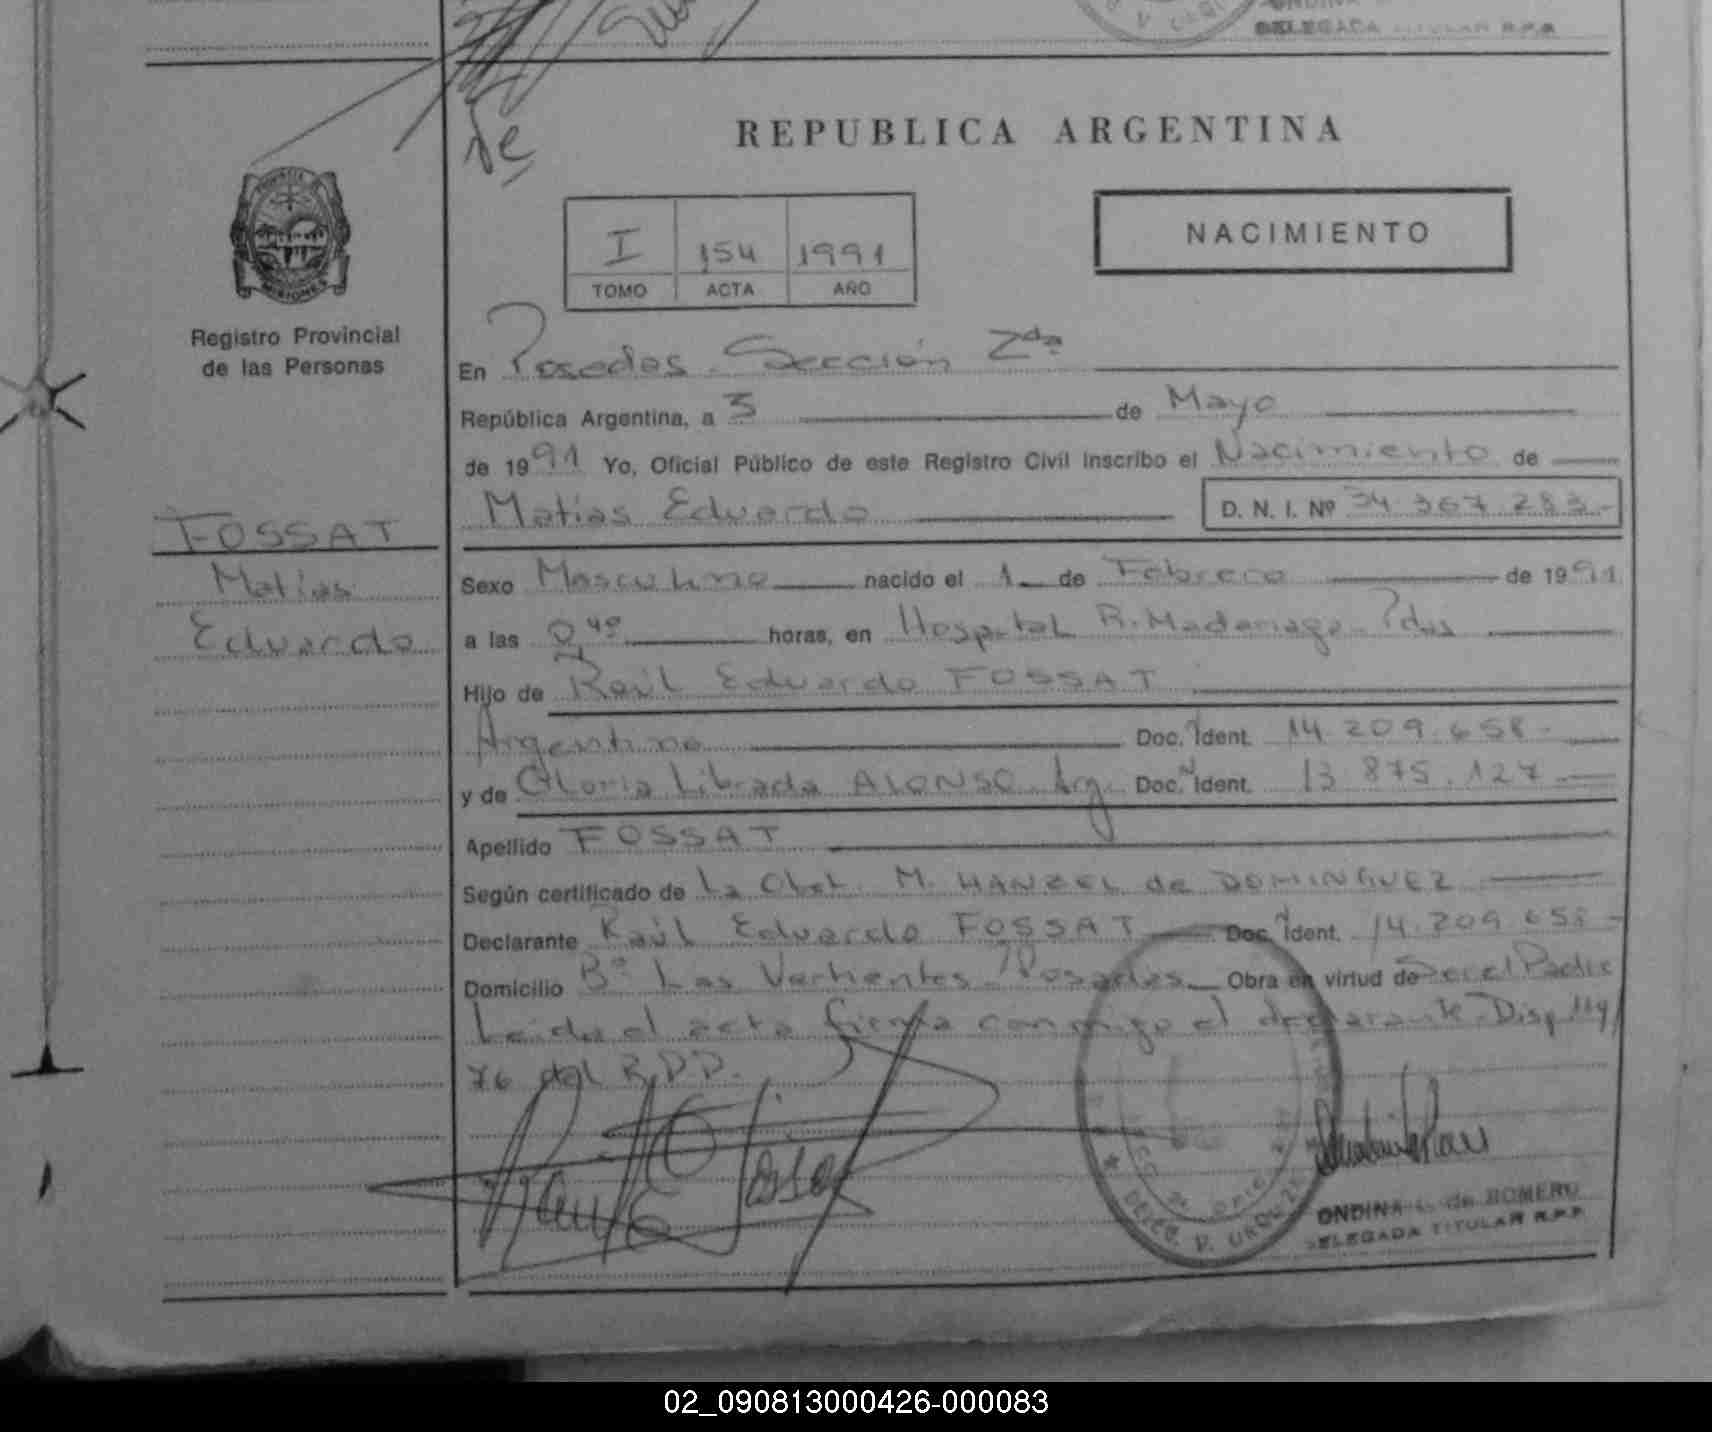 DELEGADA TITULAR R.P.P.
de
REPUBLICA ARGENTINA
I 154 1991
TOMO ACTA AÑO
NACIMIENTO
MISIONES
Registro Provincial
de las Personas
En Posadas - Sección 2da
República Argentina, a 3 de Mayo
de 1991 Yo, Oficial Público de este Registro Civil inscribo el Nacimiento de
Matías Eduardo D. N. I. Nº 34.367.283.-
FOSSAT
Matías
Eduardo
Sexo Masculino nacido el 1 de Febrero de 1991
a las 0,40 horas, en Hospital R. Madariaga - Pdas
Hijo de Raúl Eduardo FOSSAT
Argentino Doc. Ident. 14.209.658.-
y de Gloria Librada ALONSO. Arg. Doc. Ident. 13.875.127
Apellido FOSSAT
Según certificado de La Obst. M. HANZEL de DOMINGUEZ
Declarante Raúl Eduardo FOSSAT Doc. Ident. 14.209.658-
Domicilio Bº Las Vertientes - Posadas Obra en virtud de Ser el Padre
Leída el acta firma conmigo el declarante. Disp 114/
76 del R.P.P.
DELEG. V. URQUIZA
ONDINA L. de ROMERO
DELEGADA TITULAR R.P.P.
02_090813000426-000083